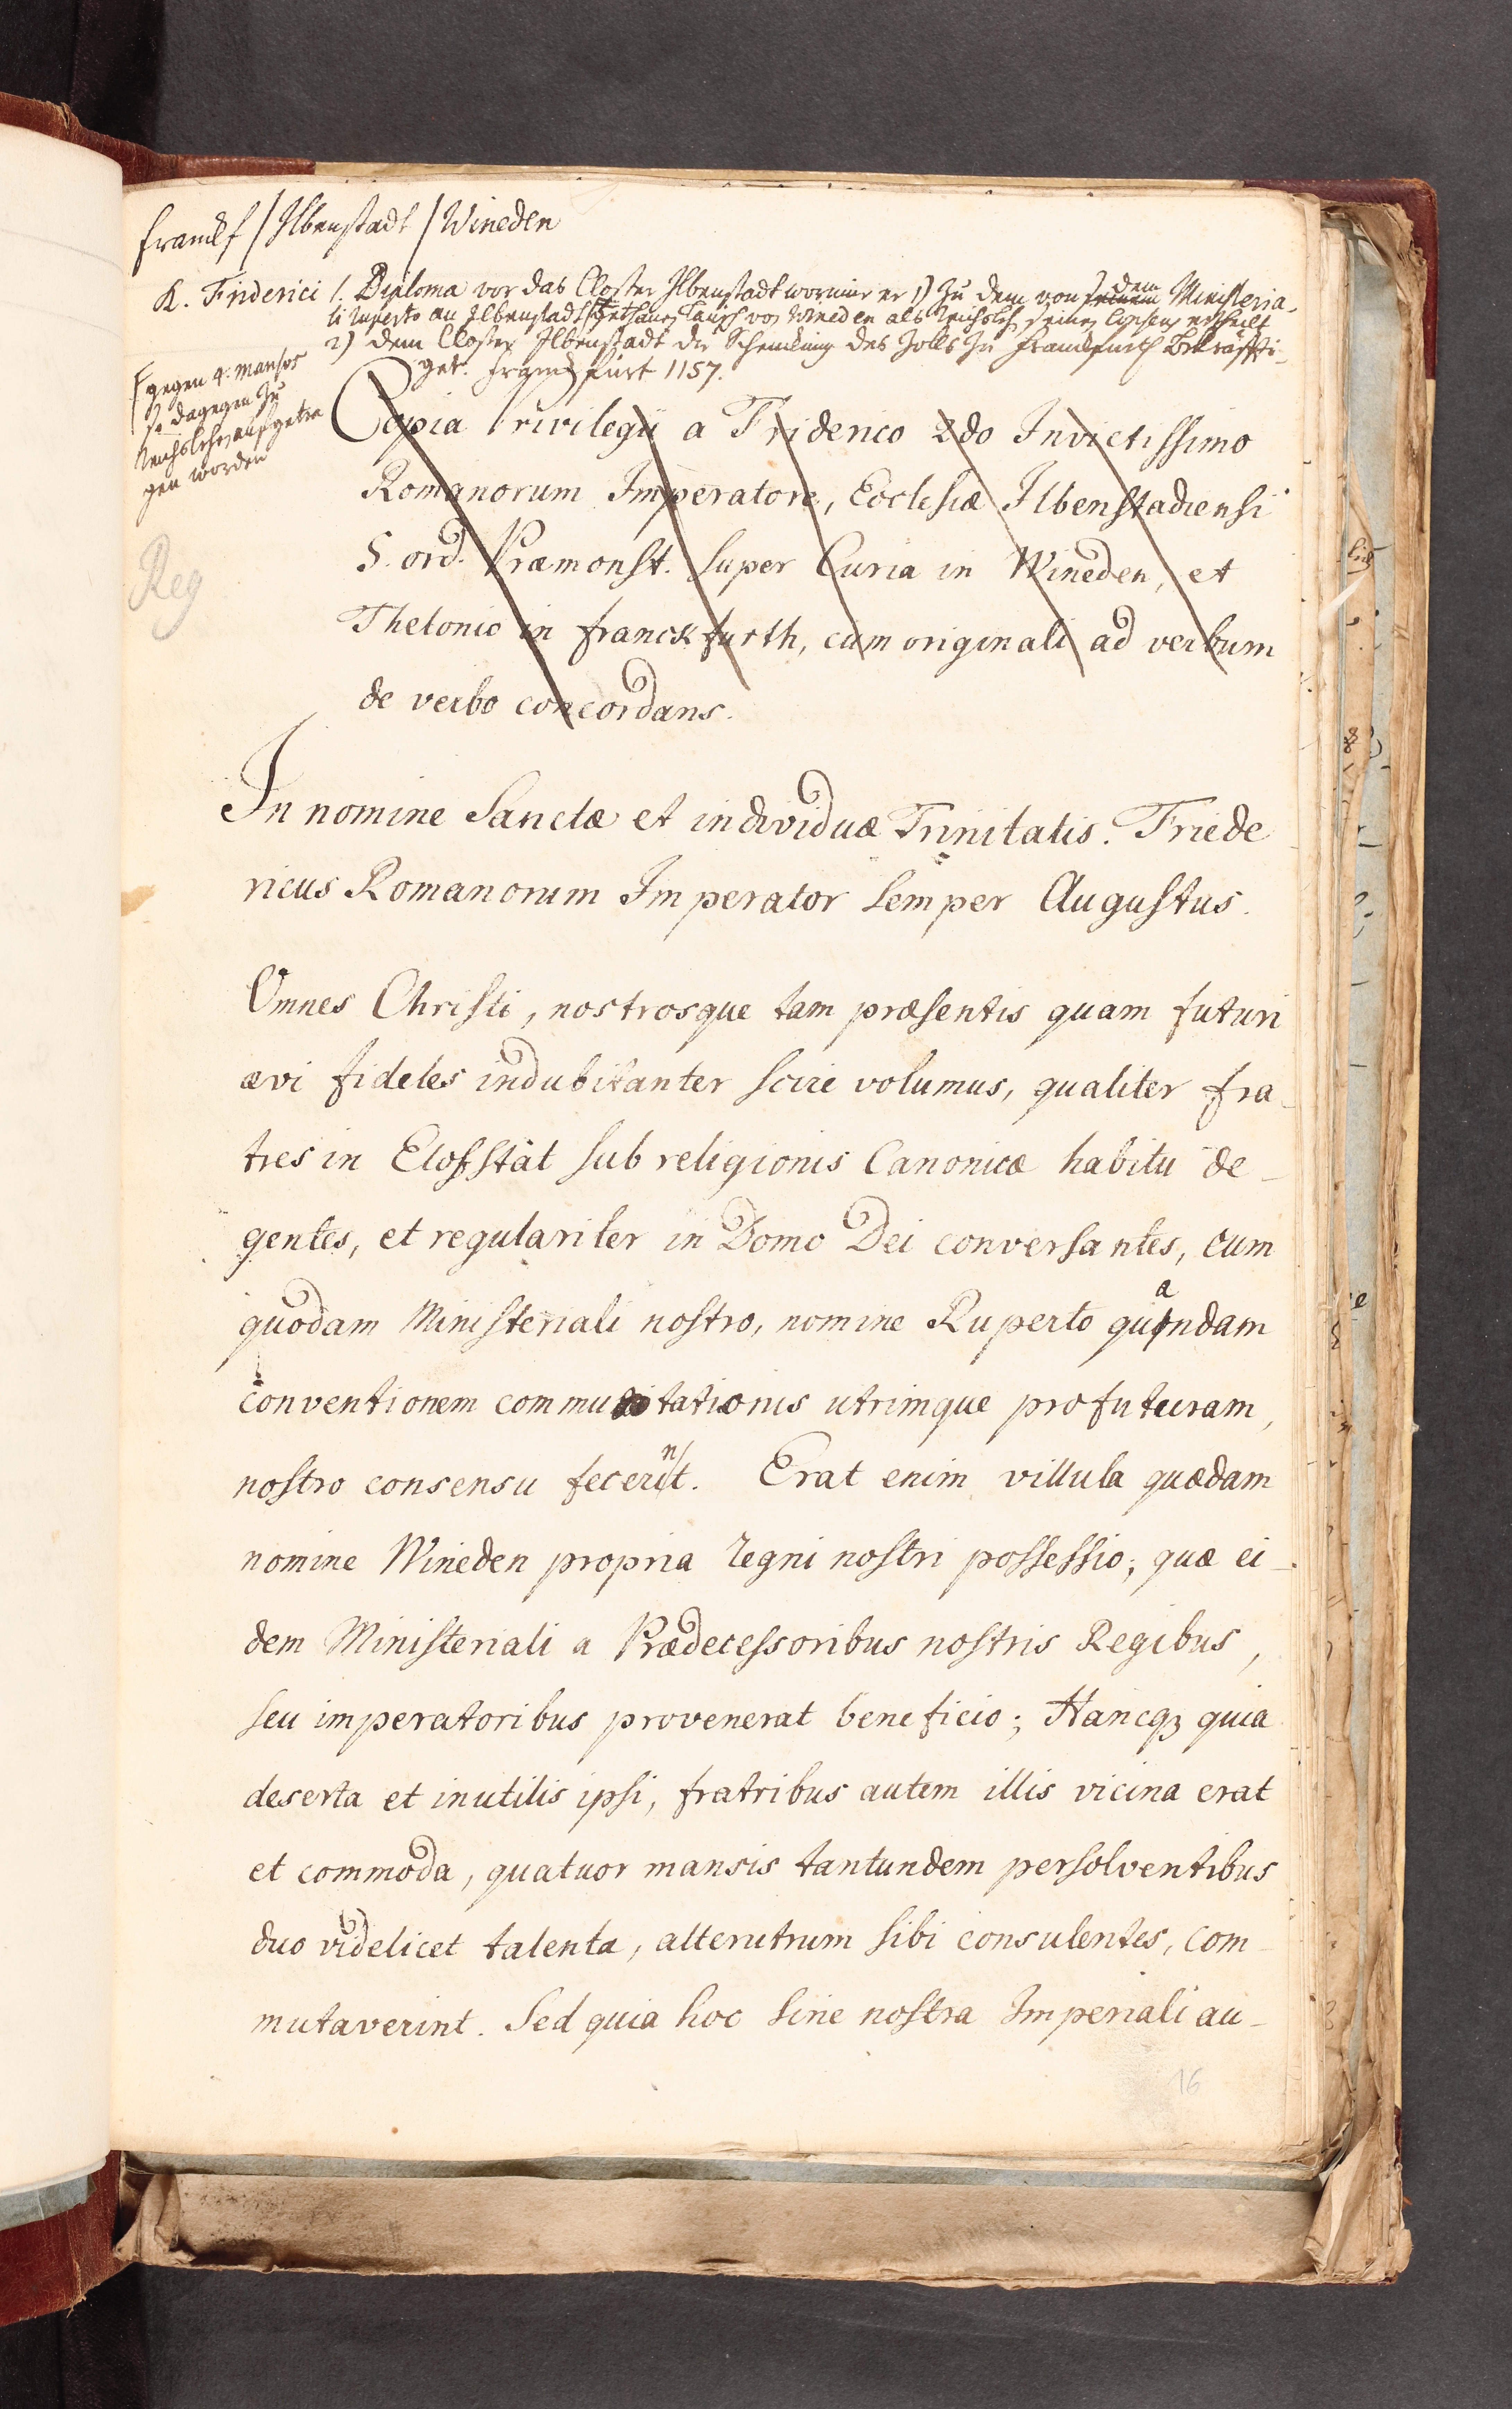 Franckf / Ilbenstadt / Wineden
K. Friderici I. Diploma vor das Closter Ilbenstadt worinnen er 1) zu dem von dem Ministeria-
li Ruperto an Ilbenstadt gethanen Tausch von Wineden als Reichslehn seinen Consens ertheilt
2) dem Closter Ilbenstadt die Schenckung des Zolls zu Franckfurth bekräffti-
get. Franckfurt 1157.
gegen 4. mansos
so dagegen zu
Reichslehn aufgetra
gen worden
Reg
Copia Privilegii a Friderico 2do Invictissimo
Romanorum Imperatore, Ecclesiæ Ilbenstadiensi
S. ord. Præmonst. super Curia in Wineden, et
Thelonio in franckfurth, cum originali ad verbum
de verbo concordans.
In nomine Sanctæ et individuæ Trinitatis. Friede
ricus Romanorum Imperator semper Augustus.
Omnes Christi, nostrosque tam præsentis quam futuri
ævi fideles indubitanter scire volumus, qualiter fra-
tres in Elofstat sub religionis Canonicæ habitu de-
gentes, et regulariter in Domo Dei conversantes, cum
quodam Ministeriali nostro, nomine Ruperto quandam
conventionem commutationis utrimque profuturam,
nostro consensu fecerint. Erat enim villula quædam
nomine Wineden propria regni nostri possessio; quæ ei-
dem Ministeriali a Prædecessoribus nostris Regibus,
seu imperatoribus provenerat beneficio; Hancq3 quia
deserta et inutilis ipsi, fratribus autem illis vicina erat
et commoda, quatuor mansis tantundem persolventibus
duo videlicet talenta, alterutrum sibi consulentes, com-
mutaverint. Sed quia hoc sine nostra Imperiali au-
16